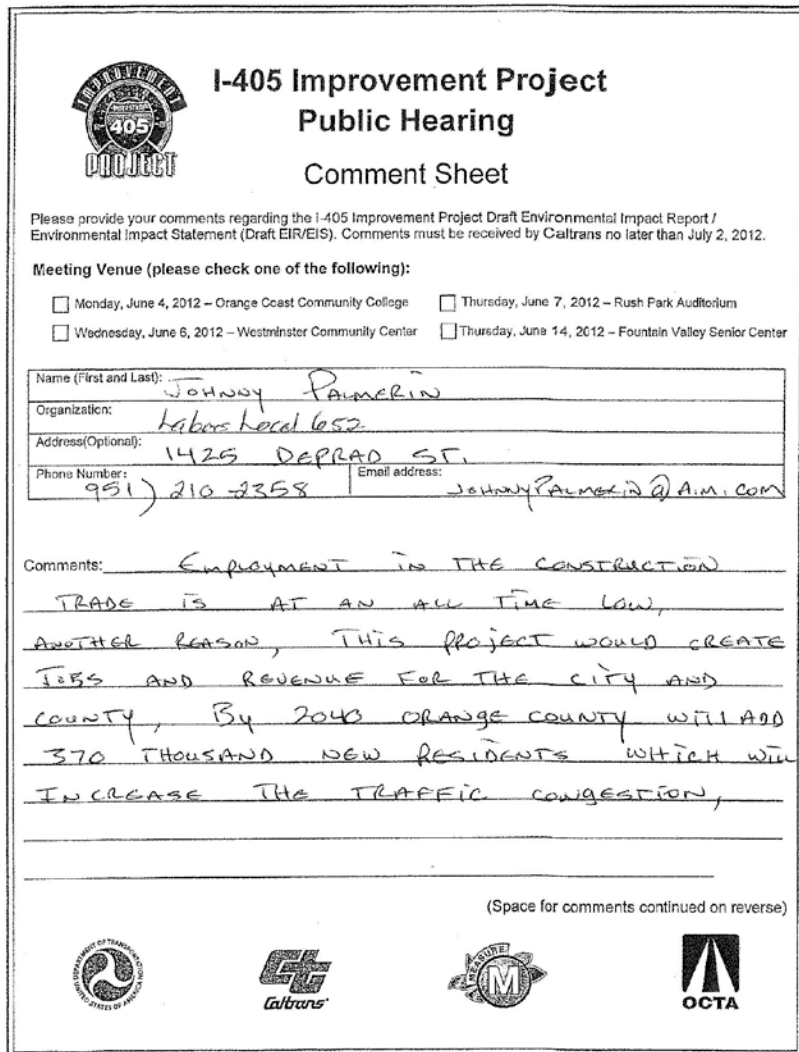 IMPROVEMENT
INTERSTATE
405
PROJECT
I-405 Improvement Project
Public Hearing
Comment Sheet
Please provide your comments regarding the I-405 Improvement Project Draft Environmental Impact Report /
Environmental Impact Statement (Draft EIR/EIS). Comments must be received by Caltrans no later than July 2, 2012.
Meeting Venue (please check one of the following):
Monday, June 4, 2012 – Orange Coast Community College
Thursday, June 7, 2012 – Rush Park Auditorium
Wednesday, June 6, 2012 – Westminster Community Center
Thursday, June 14, 2012 – Fountain Valley Senior Center
Name (First and Last): JOHNNY PALMERIN
Organization: Labors Local 652
Address(Optional): 1425 DEPRAD ST.
Phone Number: 951) 210-2358
Email address: JOHNNYPALMERIN@A.M.COM
Comments: EMPLOYMENT IN THE CONSTRUCTION
TRADE IS AT AN ALL TIME LOW,
ANOTHER REASON, THIS PROJECT WOULD CREATE
JOBS AND REVENUE FOR THE CITY AND
COUNTY, By 2040 ORANGE COUNTY WILL ADD
370 THOUSAND NEW RESIDENTS WHICH WILL
INCREASE THE TRAFFIC CONGESTION,
(Space for comments continued on reverse)
DEPARTMENT OF TRANSPORTATION
UNITED STATES OF AMERICA
Caltrans
MEASURE
M
OCTA